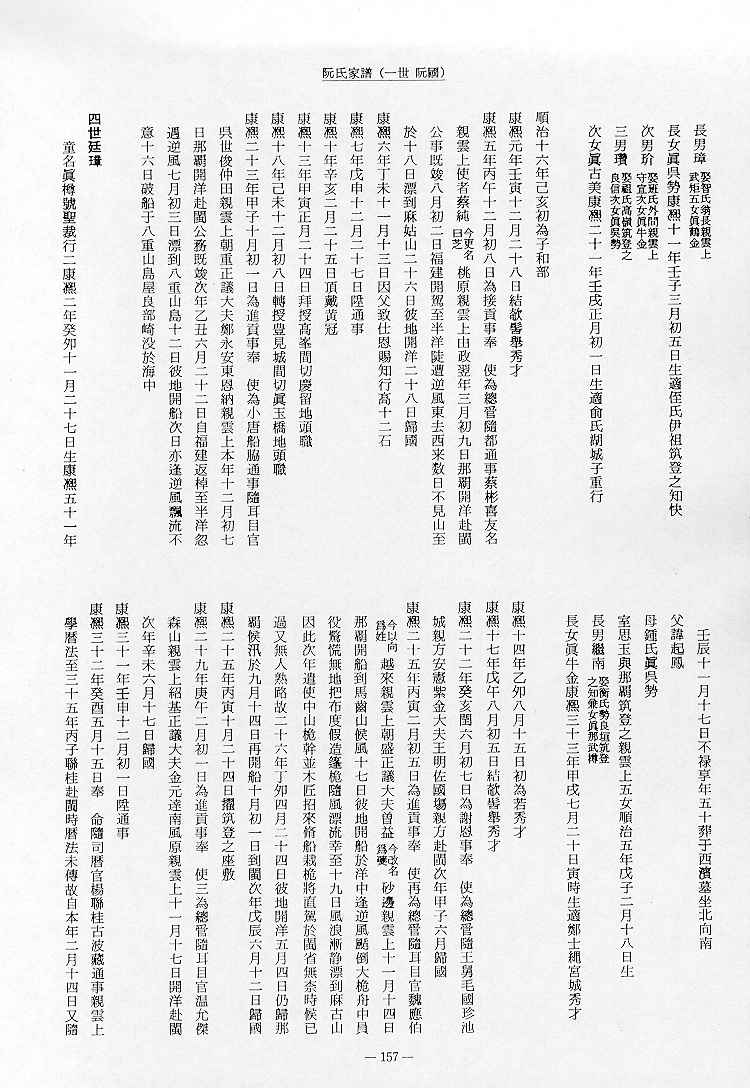 阮氏家譜(一世 阮國)
長男璋 娶智氏翁長親雲上
武矩五女眞鶴金
長女眞呉勢康凞十一年壬子三月初五日生適侄氏伊祖筑登之知快
次男玠 娶班氏外間親雲上
守宜次女眞牛金
三男瓚 娶祖氏高嶺筑登之
良信次女眞吳勢
次女眞古美康凞二十一年壬戌正月初一日生適俞氏湖城子重行
順治十六年己亥初為子和部
康凞元年壬寅十二月二十八日結欹髻舉秀才
康凞五年丙午十二月初八日為接貢事奉 使為總管隨都通事蔡彬喜友名
親雲上使者蔡純 今更名
曰芝 桃原親雲上山政翌年三月初九日那覇開洋赴閩
公事既竣八月初二日福建開駕至半洋陡遭逆風東去西来数日不見山至
於十八日漂到麻姑山二十六日彼地開洋二十八日歸國
康凞六年丁未十一月十三日因父致仕恩賜知行高十二石
康凞七年戊申十二月二十七日陞通事
康凞十年辛亥二月二十五日頂戴黃冠
康凞十三年甲寅正月二十四日拜授高峯間切慶留地頭職
康凞十八年己未十二月初八日轉授豊見城間切眞玉橋地頭職
康凞二十三年甲子十月初一日為進貢事奉 使為小唐船脇通事隨耳目官
吳世俊仲田親雲上朝重正議大夫鄭永安東恩納親雲上本年十二月初七
日那覇開洋赴閩公務既竣次年乙丑六月二十二日自福建返棹至半洋忽
遇逆風七月初三日漂到八重山島十二日彼地開船次日亦逢逆風飄流不
意十六日破船于八重山島屋良部崎没於海中
四世廷璋
童名眞樽號聖裁行二康凞二年癸卯十一月二十七日生康凞五十一年
壬辰十一月十七日不禄享年五十葬于西濱墓坐北向南
父諱起鳳
母鍾氏眞吳勢
室思玉與那覇筑登之親雲上五女順治五年戊子二月十八日生
長男繼南 娶衡氏勢良垣筑登
之知兼女眞那武樽
長女眞牛金康凞三十三年甲戌七月二十日寅時生適鄭士繩宮城秀才
康凞十四年乙卯八月十五日初為若秀才
康凞十七年戊午八月初五日結欹髻舉秀才
康凞二十二年癸亥閏六月初七日為謝恩事奉 使為總管隨王舅毛國珍池
城親方安憲紫金大夫王明佐國塲親方赴閩次年甲子六月歸國
康凞二十五年丙寅二月初五日為進貢事奉 使再為總管隨耳目官魏應伯
今以向
爲姓 越来親雲上朝盛正議大夫曽益 今改名
爲夔 砂邊親雲上十一月十四日
那覇開船到馬齒山候風十七日彼地開船於洋中逢逆風颳倒大桅舟中員
役驚慌無地把布度假造篷桅隨風漂流幸至十九日風浪漸静漂到麻古山
因此次年遣使中山桅幹並木匠招來脩船栽桅將直駕於閩省無柰時候已
過又無人熟路故二十六年丁卯四月二十四日彼地開洋五月四日仍歸那
覇候汛於九月十四日再開船十月初一日到閩次年戊辰六月十二日歸國
康凞二十五年丙寅十月二十四日擢筑登之座敷
康凞二十九年庚午二月初一日為進貢事奉 使三為總管隨耳目官温允傑
森山親雲上紹基正議大夫金元達南風原親雲上十一月十七日開洋赴閩
次年辛未六月十七日歸國
康凞三十一年壬申十二月初一日陞通事
康凞三十二年癸酉五月十五日奉 命隨司暦官楊聯桂古波藏通事親雲上
學暦法至三十五年丙子聯桂赴閩時暦法未傳故自本年二月十四日又隨
— 157 —